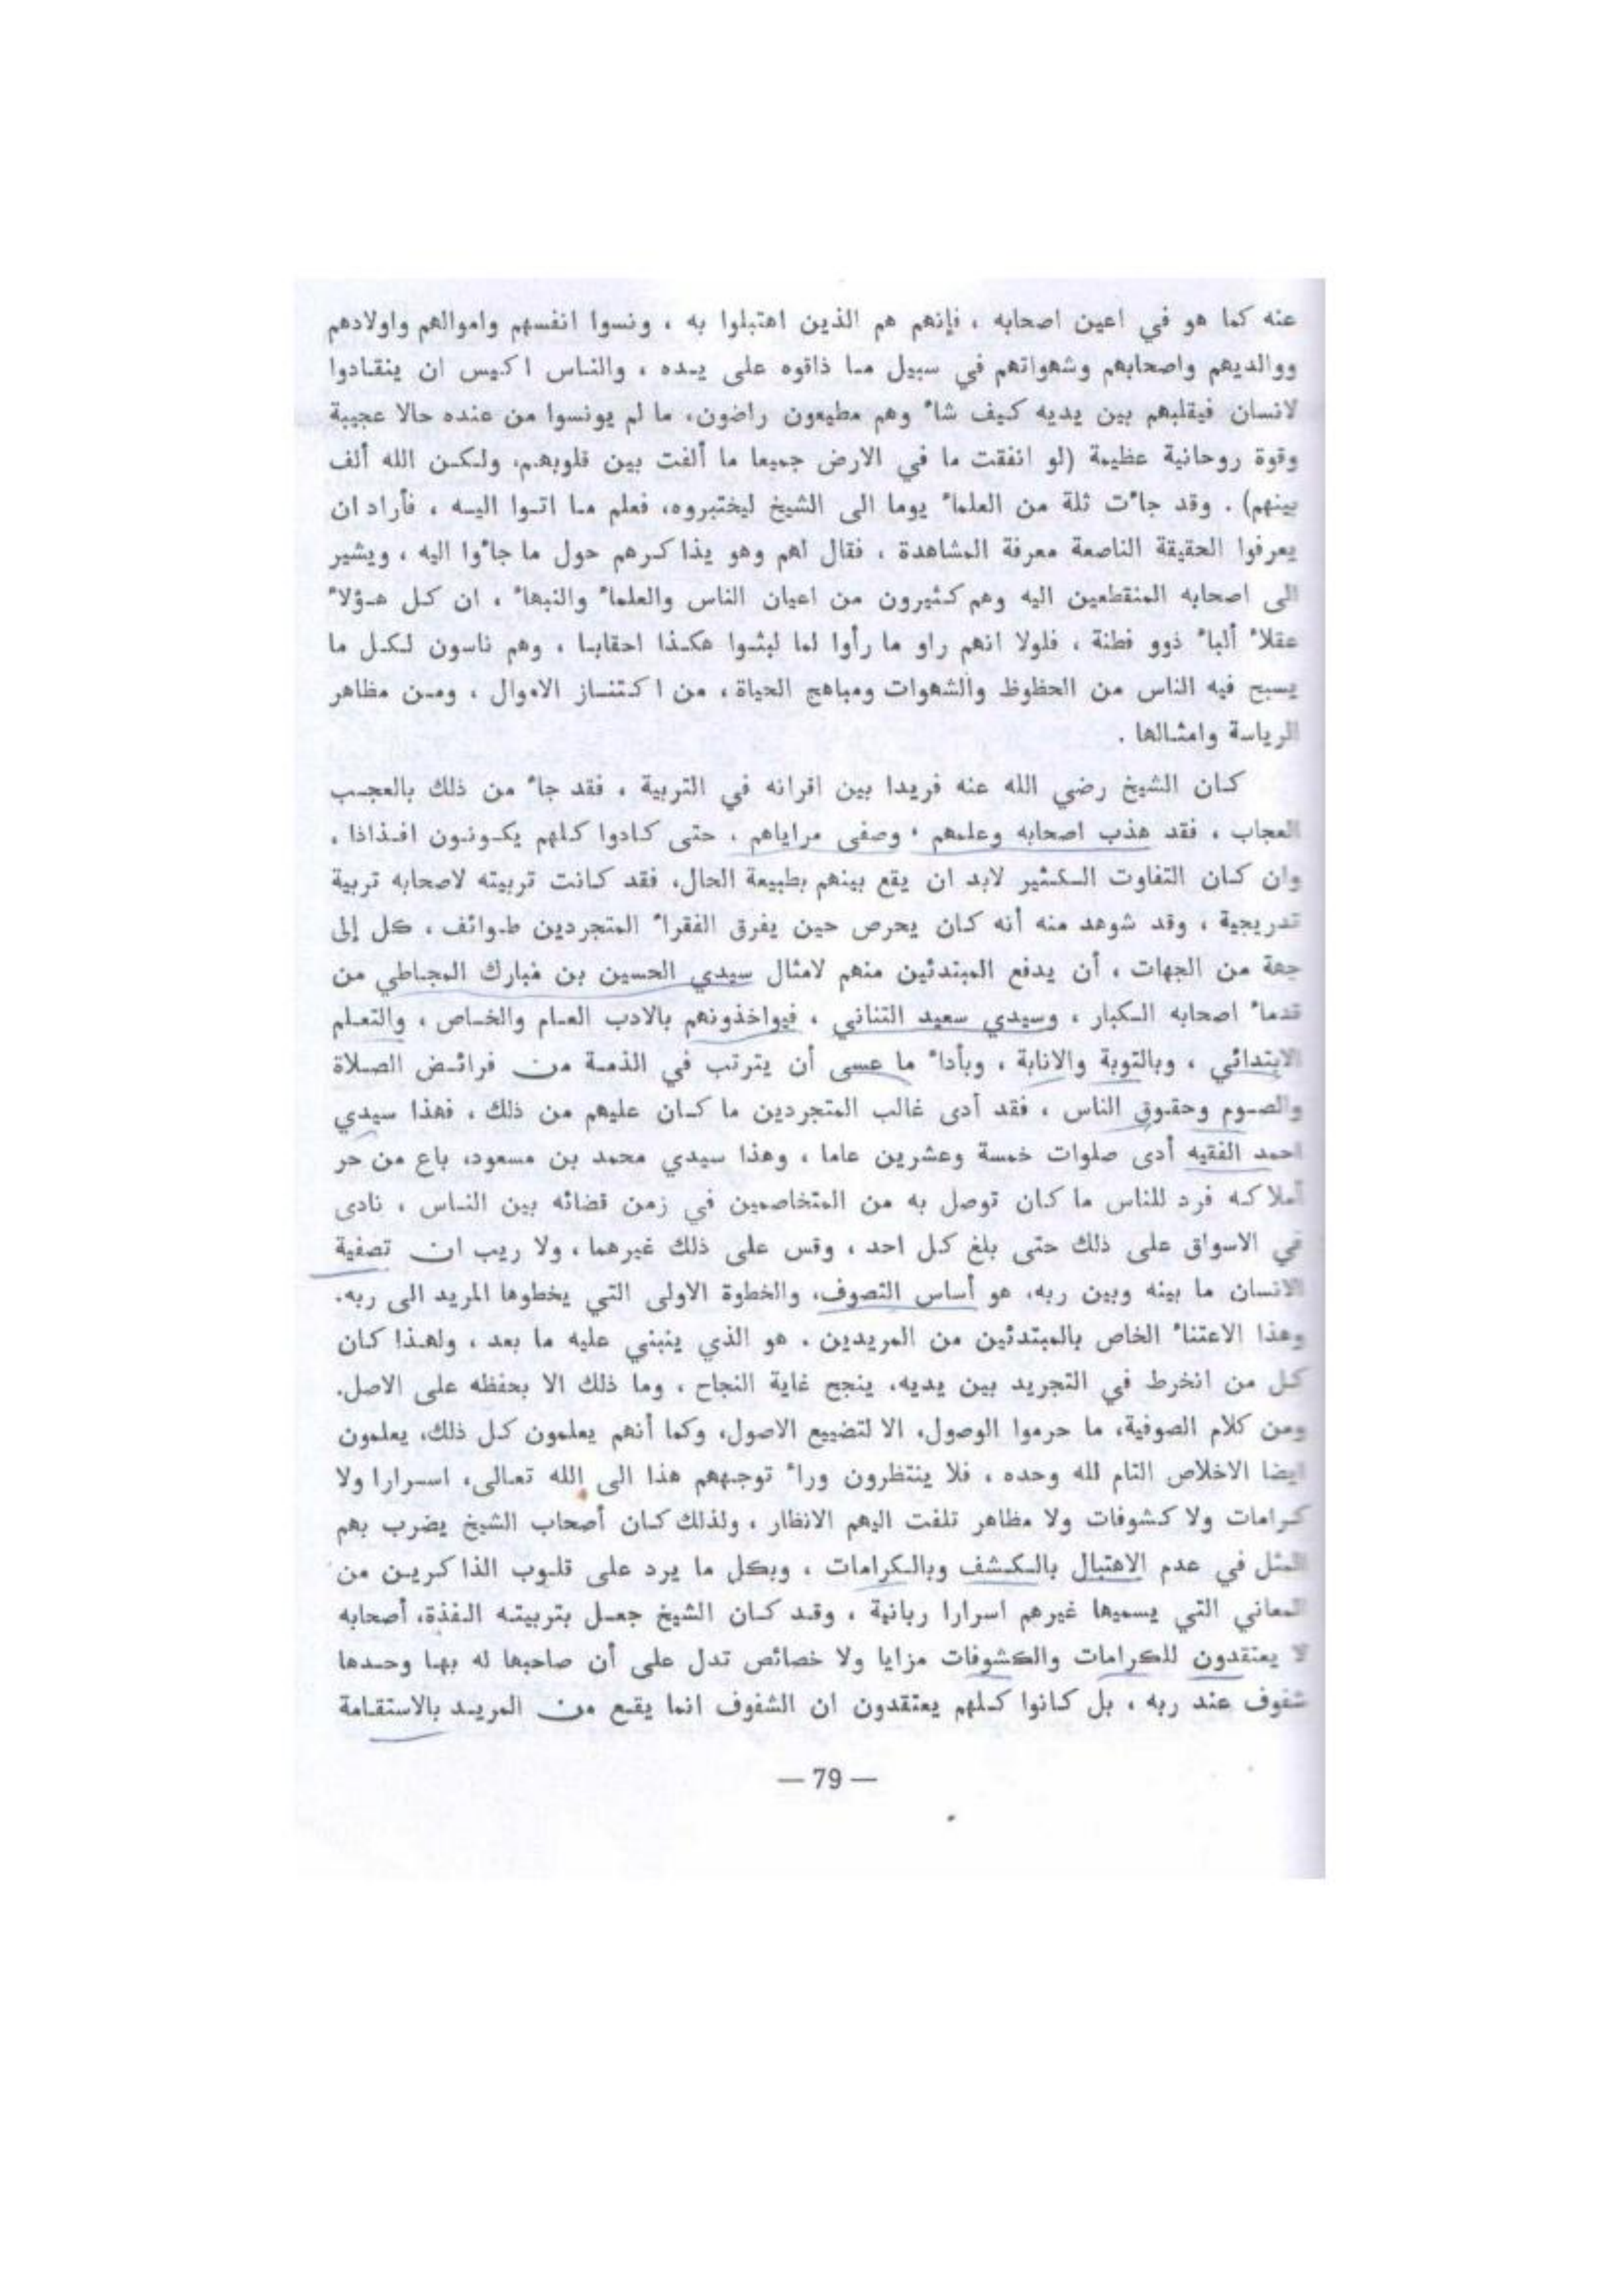 عنه كما هو في اعين اصحابه ، فإنهم هم الذين اهتبلوا به ، ونسوا انفسهم واموالهم واولادهم
ووالديهم واصحابهم وشهواتهم في سبيل ما ذاقوه على يده ، والناس اكيس ان ينقادوا
لانسان فيقلبهم بين يديه كيف شاء وهم مطيعون راضون، ما لم يونسوا من عنده حالا عجيبة
وقوة روحانية عظيمة (لو انفقت ما في الارض جميعا ما ألفت بين قلوبهم، ولكن الله ألف
بينهم) . وقد جاءت ثلة من العلماء يوما الى الشيخ ليختبروه، فعلم ما اتوا اليه ، فأراد ان
يعرفوا الحقيقة الناصعة معرفة المشاهدة ، فقال لهم وهو يذاكرهم حول ما جاءوا اليه ، ويشير
الى اصحابه المنقطعين اليه وهم كثيرون من اعيان الناس والعلماء والنبهاء ، ان كل هؤلاء
عقلاء ألباء ذوو فطنة ، فلولا انهم راو ما رأوا لما لبثوا هكذا احقابا ، وهم ناسون لكل ما
يسبح فيه الناس من الحظوظ والشهوات ومباهج الحياة ، من اكتناز الاموال ، ومن مظاهر
الرياسة وامثالها .
كان الشيخ رضي الله عنه فريدا بين اقرانه في التربية ، فقد جاء من ذلك بالعجب
العجاب ، فقد هذب اصحابه وعلمهم ، وصفى مراياهم ، حتى كادوا كلهم يكونون افذاذا ،
وان كان التفاوت الكثير لابد ان يقع بينهم بطبيعة الحال، فقد كانت تربيته لاصحابه تربية
تدريجية ، وقد شوهد منه أنه كان يحرص حين يفرق الفقراء المتجردين طوائف ، كل إلى
جهة من الجهات ، أن يدفع المبتدئين منهم لامثال سيدي الحسين بن مبارك المجاطي من
قدماء اصحابه الكبار ، وسيدي سعيد التناني ، فيواخذونهم بالادب العام والخاص ، والتعلم
الابتدائي ، وبالتوبة والانابة ، وبأداء ما عسى أن يترتب في الذمة من فرائض الصلاة
والصوم وحقوق الناس ، فقد أدى غالب المتجردين ما كان عليهم من ذلك ، فهذا سيدي
احمد الفقيه أدى صلوات خمسة وعشرين عاما ، وهذا سيدي محمد بن مسعود، باع من حر
أملاكه فرد للناس ما كان توصل به من المتخاصمين في زمن قضائه بين الناس ، نادى
في الاسواق على ذلك حتى بلغ كل احد ، وقس على ذلك غيرهما ، ولا ريب ان تصفية
الانسان ما بينه وبين ربه، هو أساس التصوف، والخطوة الاولى التي يخطوها المريد الى ربه،
وهذا الاعتناء الخاص بالمبتدئين من المريدين ، هو الذي ينبني عليه ما بعد ، ولهذا كان
كل من انخرط في التجريد بين يديه، ينجح غاية النجاح ، وما ذلك الا بحفظه على الاصل.
ومن كلام الصوفية، ما حرموا الوصول، الا لتضييع الاصول، وكما أنهم يعلمون كل ذلك، يعلمون
ايضا الاخلاص التام لله وحده ، فلا ينتظرون وراء توجههم هذا الى الله تعالى، اسرارا ولا
كرامات ولا كشوفات ولا مظاهر تلفت اليهم الانظار ، ولذلك كان أصحاب الشيخ يضرب بهم
المثل في عدم الاهتبال بالكشف وبالكرامات ، وبكل ما يرد على قلوب الذاكرين من
المعاني التي يسميها غيرهم اسرارا ربانية ، وقد كان الشيخ جعل بتربيته الفذة، أصحابه
لا يعتقدون للكرامات والكشوفات مزايا ولا خصائص تدل على أن صاحبها له بها وحدها
شفوف عند ربه ، بل كانوا كلهم يعتقدون ان الشفوف انما يقع من المريد بالاستقامة
— 79 —